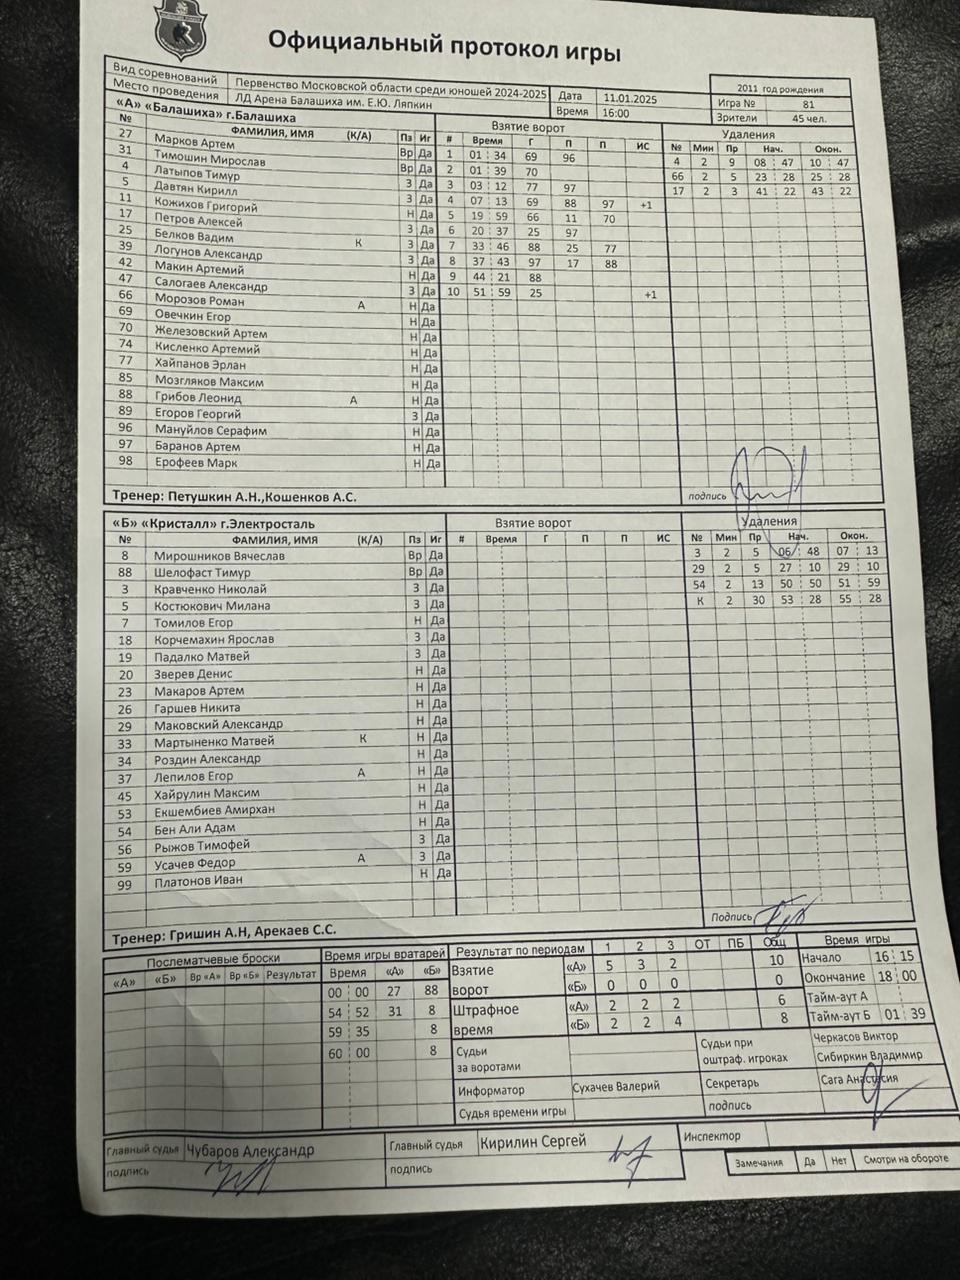 Официальный протокол игры
Вид соревнований Первенство Московской области среди юношей 2024-2025 Дата 11.01.2025 2011 год рождения
Место проведения ЛД Арена Балашиха им. Е.Ю. Ляпкин Время 16:00 Игра № 81
Зрители 45 чел.
«А» «Балашиха» г.Балашиха Взятие ворот Удаления
№ ФАМИЛИЯ, ИМЯ (К/А) Пз Иг # Время Г П П ИС № Мин Пр Нач. Окон.
27 Марков Артем Вр Да 1 01 : 34 69 96 4 2 9 08 : 47 10 : 47
31 Тимошин Мирослав Вр Да 2 01 : 39 70 66 2 5 23 : 28 25 : 28
4 Латыпов Тимур З Да 3 03 : 12 77 97 17 2 3 41 : 22 43 : 22
5 Давтян Кирилл З Да 4 07 : 13 69 88 97 +1
11 Кожихов Григорий Н Да 5 19 : 59 66 11 70
17 Петров Алексей З Да 6 20 : 37 25 97
25 Белков Вадим К З Да 7 33 : 46 88 25 77
39 Логунов Александр З Да 8 37 : 43 97 17 88
42 Макин Артемий Н Да 9 44 : 21 88
47 Салогаев Александр З Да 10 51 : 59 25 +1
66 Морозов Роман А Н Да
69 Овечкин Егор Н Да
70 Железовский Артем Н Да
74 Кисленко Артемий Н Да
77 Хайпанов Эрлан Н Да
85 Мозгляков Максим Н Да
88 Грибов Леонид А Н Да
89 Егоров Георгий З Да
96 Мануйлов Серафим Н Да
97 Баранов Артем Н Да
98 Ерофеев Марк Н Да
Тренер: Петушкин А.Н.,Кошенков А.С. подпись
«Б» «Кристалл» г.Электросталь Взятие ворот Удаления
№ ФАМИЛИЯ, ИМЯ (К/А) Пз Иг # Время Г П П ИС № Мин Пр Нач. Окон.
8 Мирошников Вячеслав Вр Да 3 2 5 06 : 48 07 : 13
88 Шелофаст Тимур Вр Да 29 2 5 27 : 10 29 : 10
3 Кравченко Николай З Да 54 2 13 50 : 50 51 : 59
5 Костюкович Милана З Да К 2 30 53 : 28 55 : 28
7 Томилов Егор Н Да
18 Корчемахин Ярослав З Да
19 Падалко Матвей З Да
20 Зверев Денис Н Да
23 Макаров Артем Н Да
26 Гаршев Никита Н Да
29 Маковский Александр Н Да
33 Мартыненко Матвей К Н Да
34 Роздин Александр Н Да
37 Лепилов Егор А Н Да
45 Хайрулин Максим Н Да
53 Екшембиев Амирхан Н Да
54 Бен Али Адам Н Да
56 Рыжов Тимофей З Да
59 Усачев Федор А З Да
99 Платонов Иван Н Да
Подпись
Тренер: Гришин А.Н, Арекаев С.С.
Послематчевые броски Время игры вратарей Результат по периодам 1 2 3 ОТ ПБ Общ Время игры
«А» «Б» Вр «А» Вр «Б» Результат Время «А» «Б» Взятие ворот «А» 5 3 2 10 Начало 16 : 15
00 : 00 27 88 «Б» 0 0 0 0 Окончание 18 : 00
54 : 52 31 8 Штрафное время «А» 2 2 2 6 Тайм-аут А
59 : 35 8 «Б» 2 2 4 8 Тайм-аут Б 01 : 39
60 : 00 8 Судьи за воротами Судьи при оштраф. игроках Черкасов Виктор
Сибиркин Владимир
Информатор Сухачев Валерий Секретарь Сага Анастасия
Судья времени игры подпись
Главный судья Чубаров Александр Главный судья Кирилин Сергей Инспектор
подпись подпись Замечания Да Нет Смотри на обороте